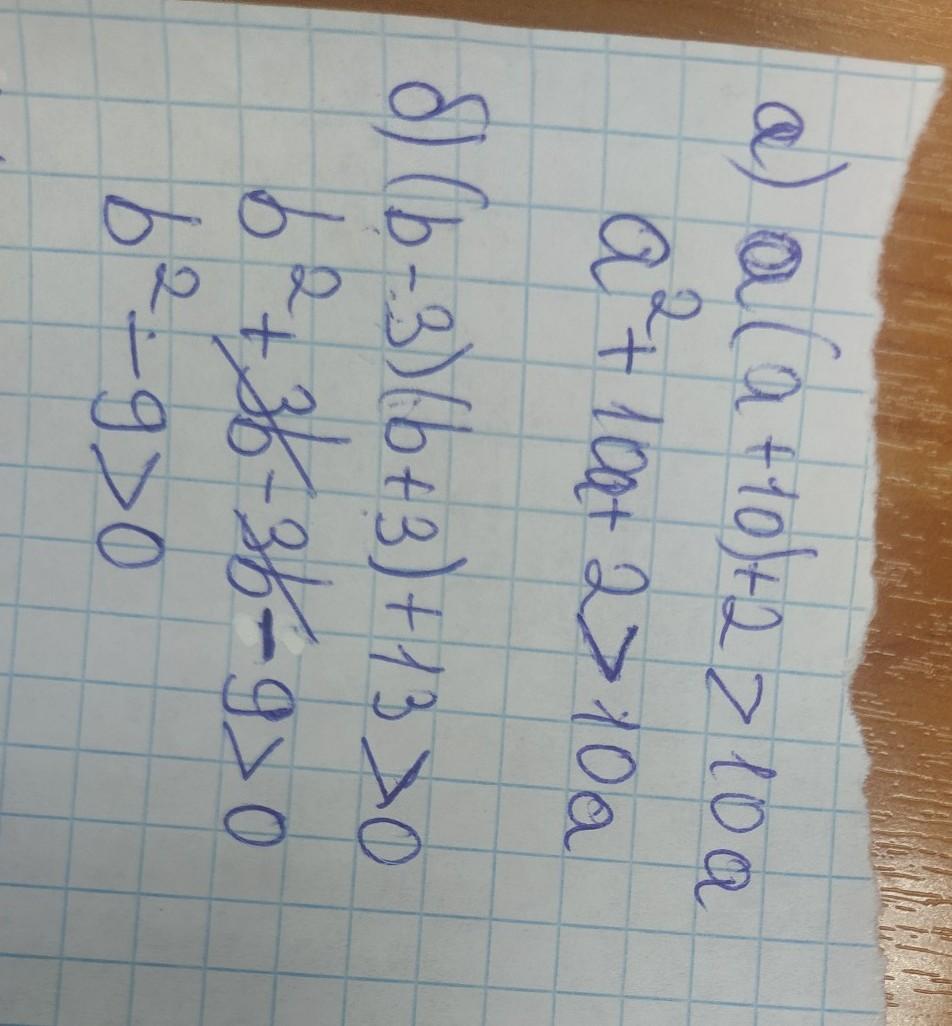 а) a(a+10)+2>10a
a²+10a+2>10a
б) (b-3)(b+3)+13>0
b²+3b-3b-9>0
b²-9>0